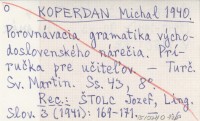 KOPERDAN Michal 1940.
Porovnávacia gramatika výcho-
doslovenského nárečia. Prí-
ručka pre učiteľov. – Turč.
Sv. Martin. Ss. 43, 8°.
Rec.: ŠTOLC Jozef, Ling.
Slov. 3 (1941): 169-171.